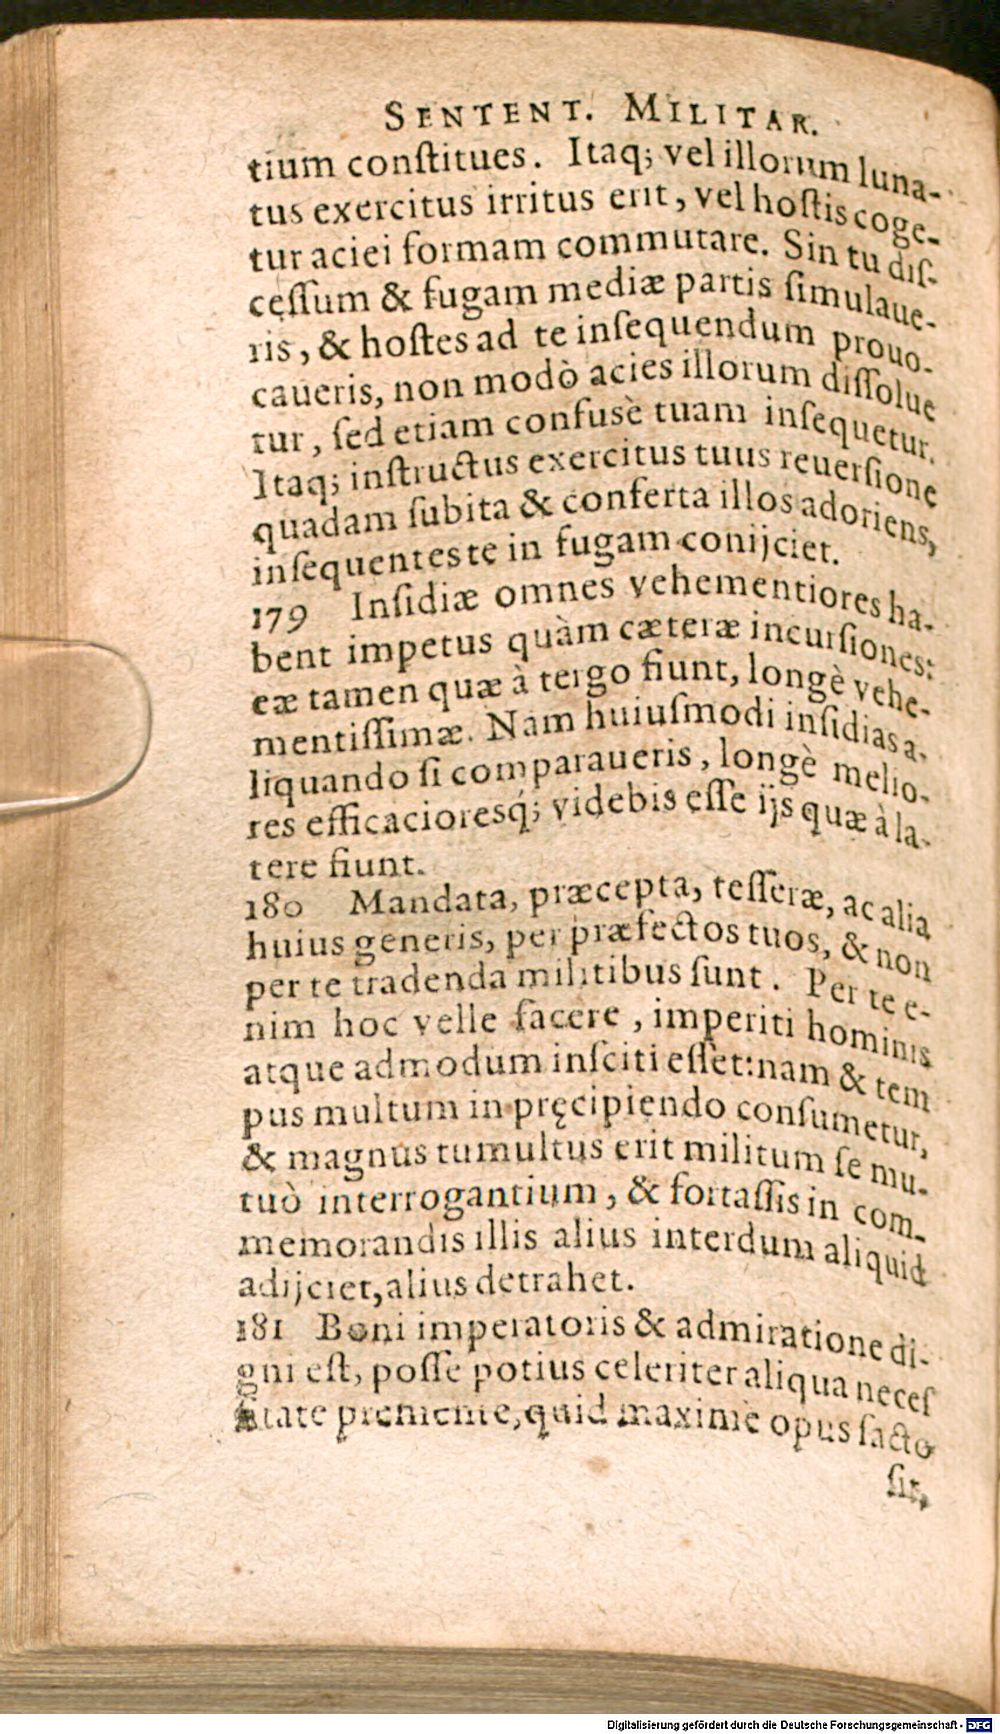 SENTENT. MILITAR.
tium conſtitues. Itaq; vel illorum luna-
tus exercitus irritus erit, vel hoſtis coge-
tur aciei formam commutare. Sin tu diſ-
ceſſum & fugam mediæ partis ſimulaue-
ris, & hoſtes ad te inſequendum prouo-
caueris, non modò acies illorum diſſolue
tur, ſed etiam confuſè tuam inſequetur.
Itaq; inſtructus exercitus tuus reuerſione
quadam ſubita & conferta illos adoriens,
inſequentes te in fugam conijciet.
179 Inſidiæ omnes vehementiores ha-
bent impetus quàm cæteræ incurſiones:
eæ tamen quæ à tergo fiunt, longè vehe-
mentiſſimæ. Nam huiuſmodi inſidias a-
liquando ſi comparaueris, longè melio-
res efficacioresq́; videbis eſſe ijs quæ à la-
tere fiunt.
180 Mandata, præcepta, teſſeræ, ac alia
huius generis, per præfectos tuos, & non
per te tradenda militibus ſunt. Per te e-
nim hoc velle facere, imperiti hominis
atque admodum inſciti eſſet: nam & tem
pus multum in pręcipiendo conſumetur,
& magnus tumultus erit militum ſe mu-
tuò interrogantium, & fortaſſis in com-
memorandis illis alius interdum aliquid
adijciet, alius detrahet.
181 Boni imperatoris & admiratione di-
gni eſt, poſſe potius celeriter aliqua neceſ
ſitate premente, quid maximè opus facto
ſit,
Digitalisierung gefördert durch die Deutsche Forschungsgemeinschaft - DFG